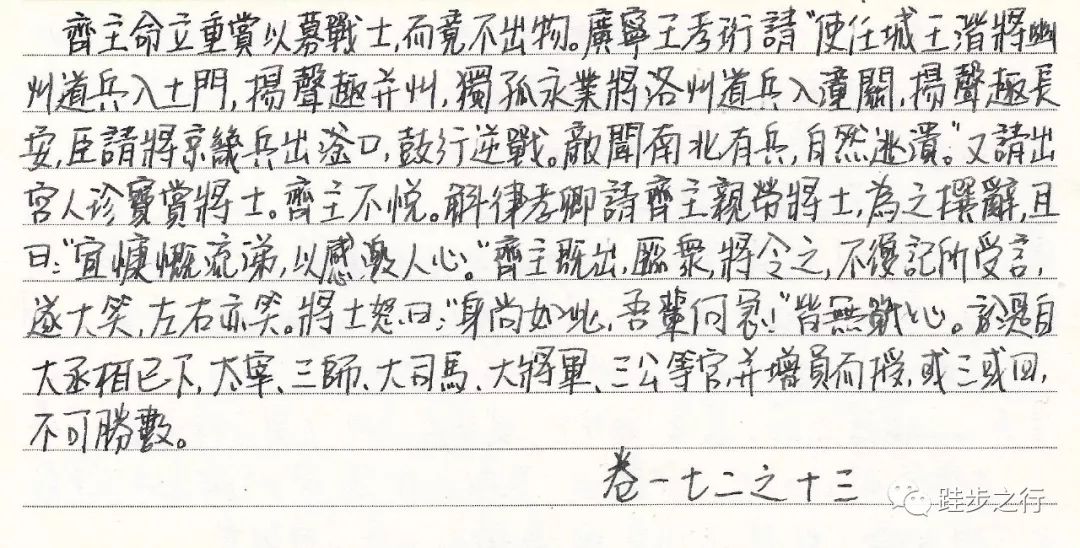 齊主命立重賞以募戰士,而竟不出物。廣寧王孝珩請"使任城王湝將幽
州道兵入土門,揚聲趣并州,獨孤永業將洛州道兵入潼關,揚聲趣長
安,臣請將京畿兵出滏口,鼓行逆戰。敵聞南北有兵,自然逃潰。"又請出
宮人珍寶賞將士。齊主不悅。斛律孝卿請齊主親勞將士,為之撰辭,且
曰:"宜慷慨流涕,以感激人心。"齊主既出,臨眾,將令之,不復記所受言,
遂大笑,左右亦笑。將士怒曰:"身尚如此,吾輩何急!"皆無戰心。於是自
大丞相已下,太宰、三師、大司馬、大將軍、三公等官,并增員而授,或三或四,
不可勝數。
卷一七二之十三
跬步之行